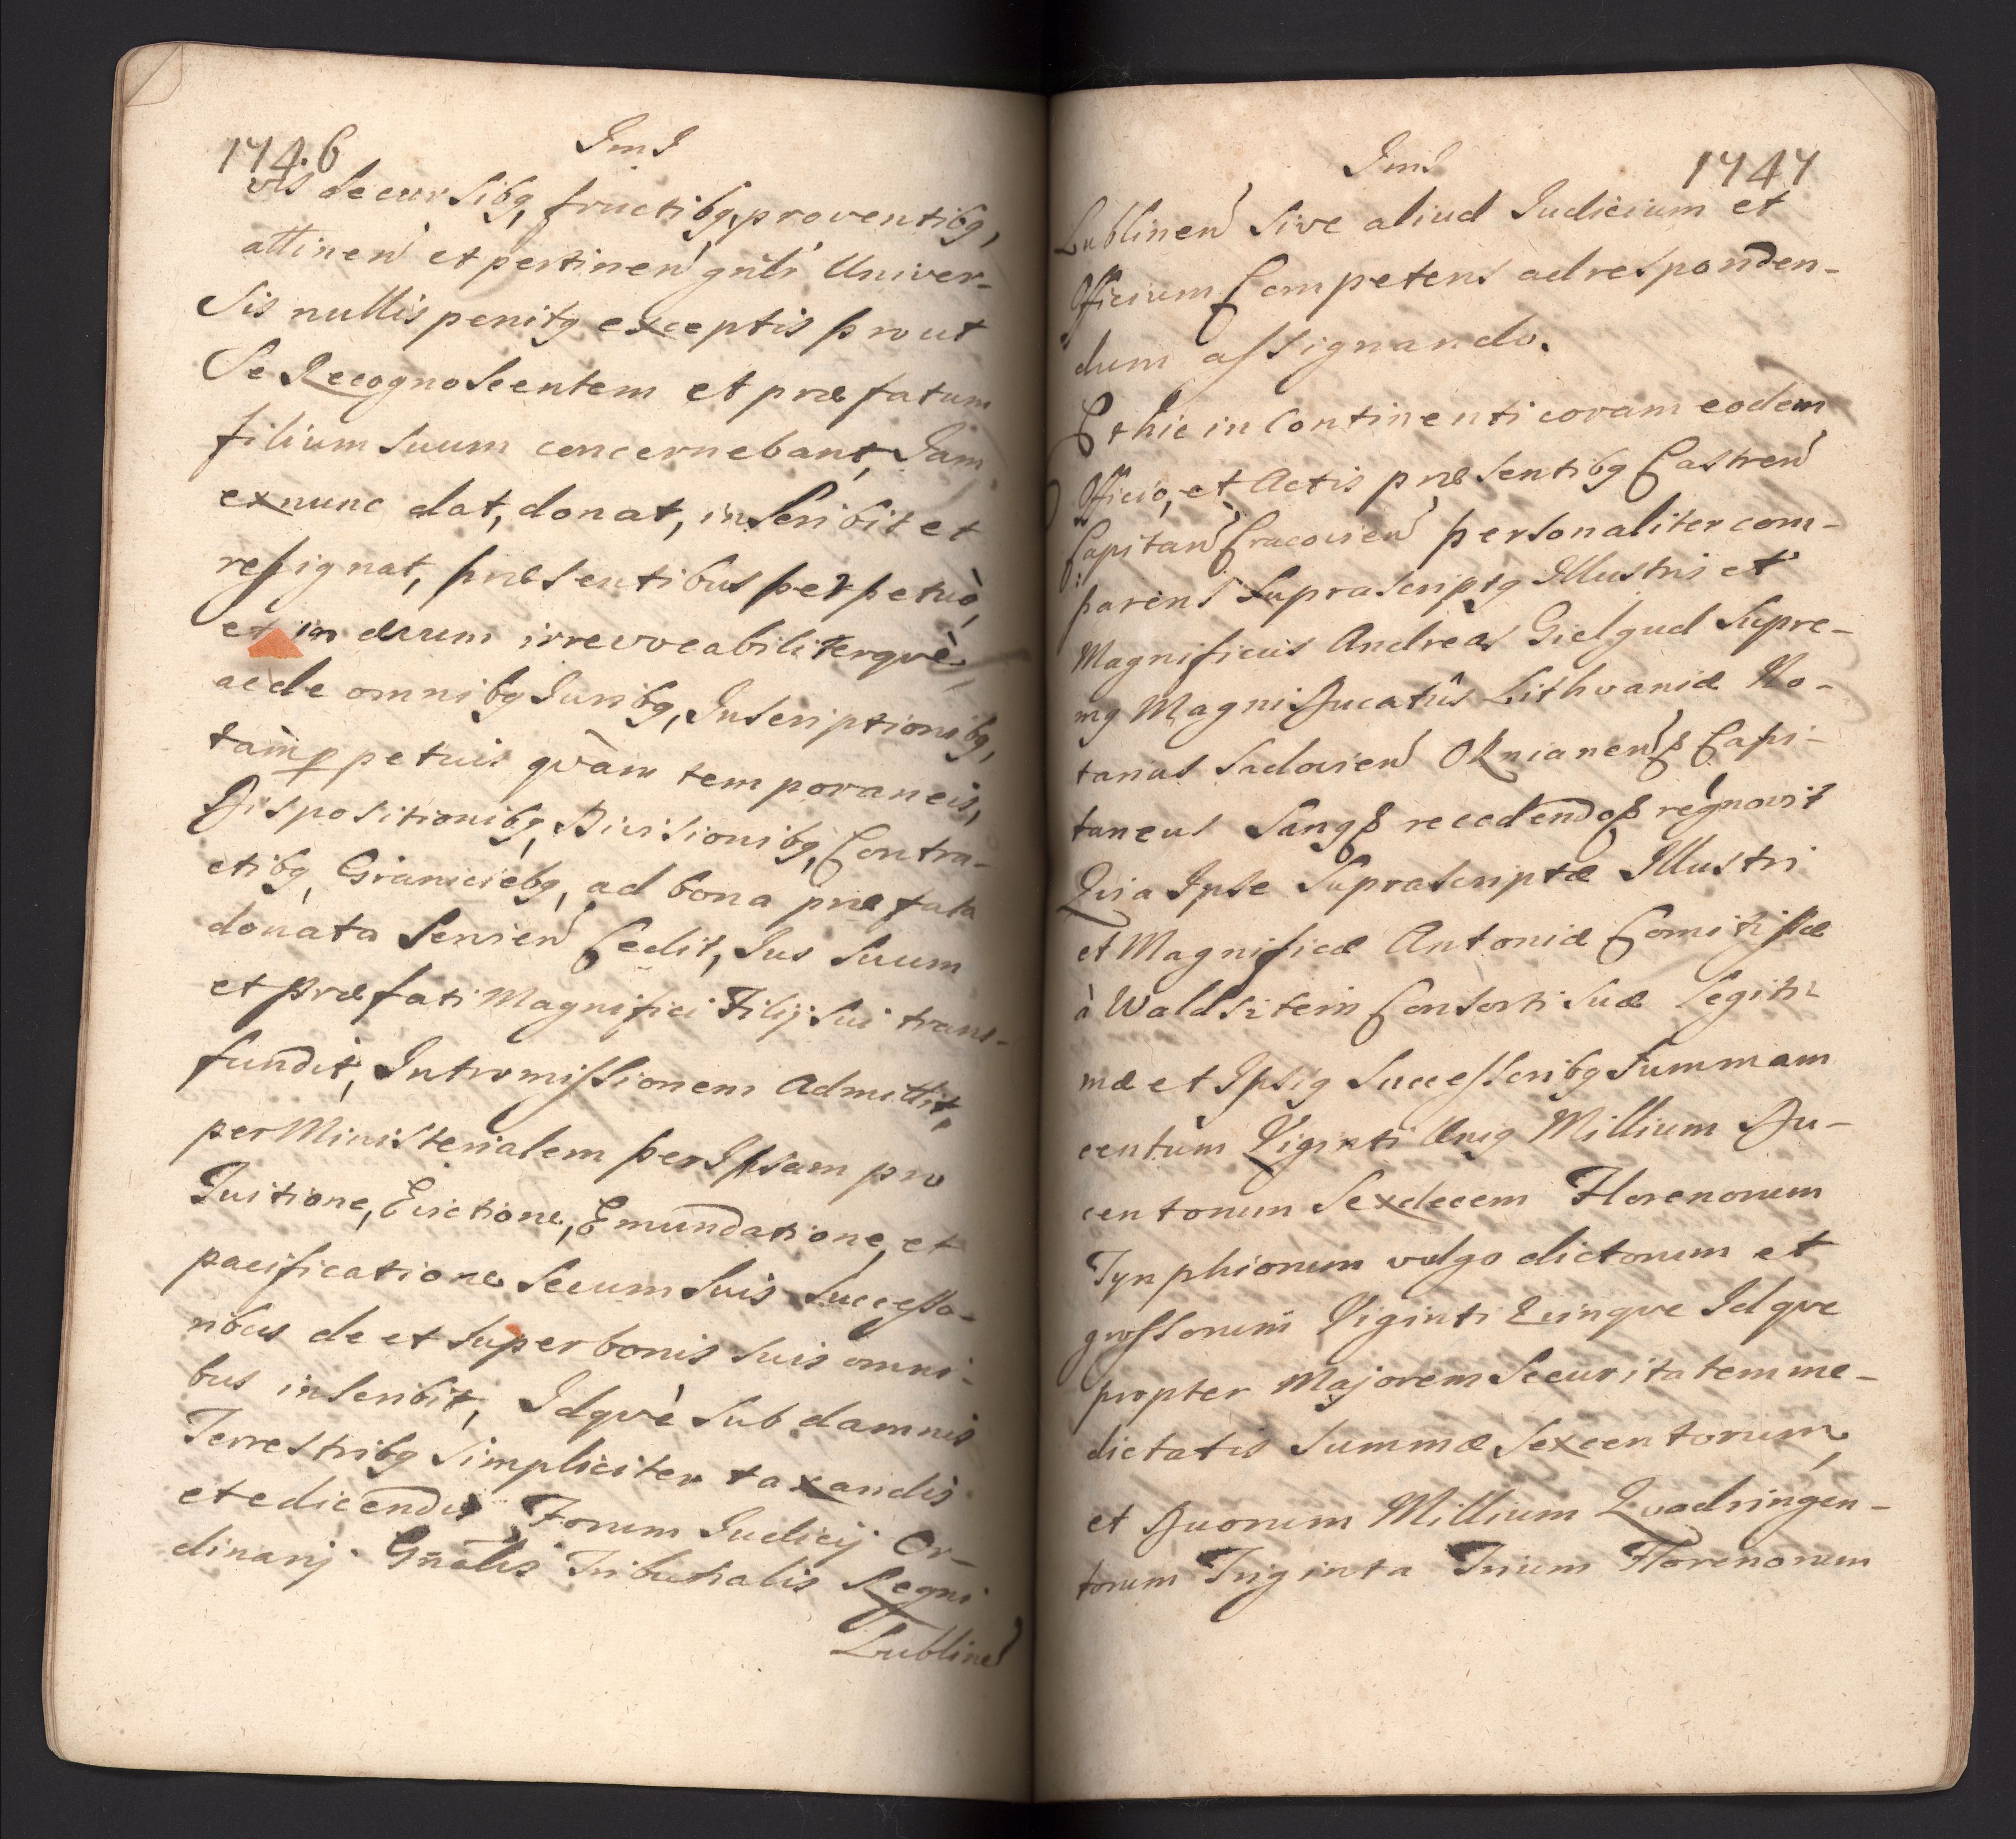 1746
Im J
vis decursibq, fructibq, proventibq,
attinen et pertinen gnli Univer-
sis nullis penitq exceptis prout
Se Recognoscentem et præfatum
filium suum concernebant, Jam
exnunc dat, donat, inscribit et
resignat, præsentibus perpetuò,
et in ævum irrevocabiliterqvè,
ac de omnibq Juribq, Inscriptionibq,
tàm ppetuis qvàm temporaneis,
Dispositionibq, Divisionibq, Contra-
ctibq, Graniciebq, ad bona præfata
donata Servien Cedit, Jus suum
et præfati Magnifici Filij sui trans-
fundit, Intromissionem Admittit,
per Ministerialem per Ipsam pro
Tuitione, Evictione, Emundatione, et
pacificatione secum suis successo-
ribus de et super bonis suis omni-
bus inscribit, Idqvè sub damnis
Terrestribq simpliciter taxandis
et edicendis Forum Judicij Or-
dinarij Gnalis Tribunalis Regni
Lublinen
Im J
1747
Lublinen sive aliud Judicium et
Officium Competens ad responden-
dum assignando.
Et hic in Continenti coram eodem
Officio, et Actis præsentibq Castren
Capitan Cracovien personaliter com-
parens Suprascriptq Illustris et
Magnificus Andreas Gielgud Supre-
mq Magni Ducatûs Lithvaniæ No-
tarius Sadovien Oknianenß Capi-
taneus Sangß recedendoß regnovit
Quia Ipse Suprascriptæ Illustri
et Magnificæ Antoniæ Comitissæ
à Waldsztein Consorti suæ Legiti-
mæ et Ipsiq Successoribq Summam
centum Viginti Uniq Millium Du-
centorum Sexdecem Florenorum
Tynphionum vulgo dictorum et
grossorum Viginti Quinqve Idqve
propter Majorem Securitatem me-
dictatis summæ Sexcentorum,
et Duorum Millium Qvadringen-
torum Triginta Trium Florenorum